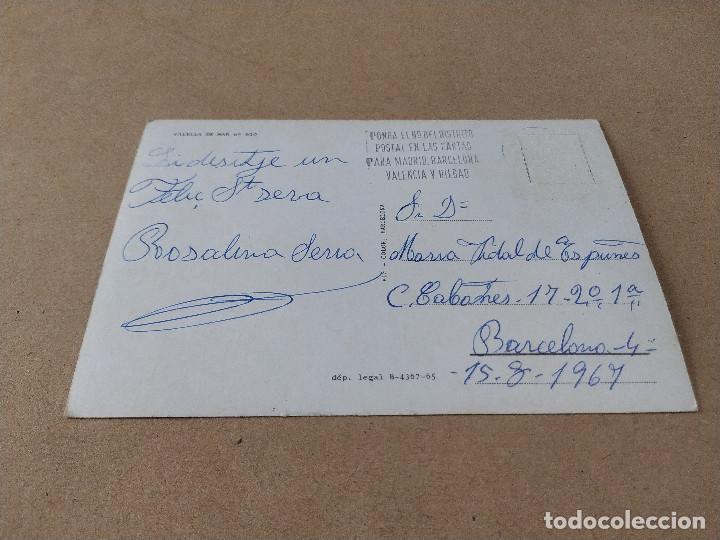 DE MAR nº
PONGA EL Nº DEL DISTRITO
POSTAL EN LAS CARTAS
PARA MADRID, BARCELONA
VALENCIA Y BILBAO
Li desitje un
Feliç St seva
Rosalina Serra
COLOR, BARCELONA
Sª Dª
Maria Vidal de Espunes
C. Cabañes-17-2º 1ª
Barcelona-4=
-15-8-1967
dép. legal B-4367-65
todocoleccion